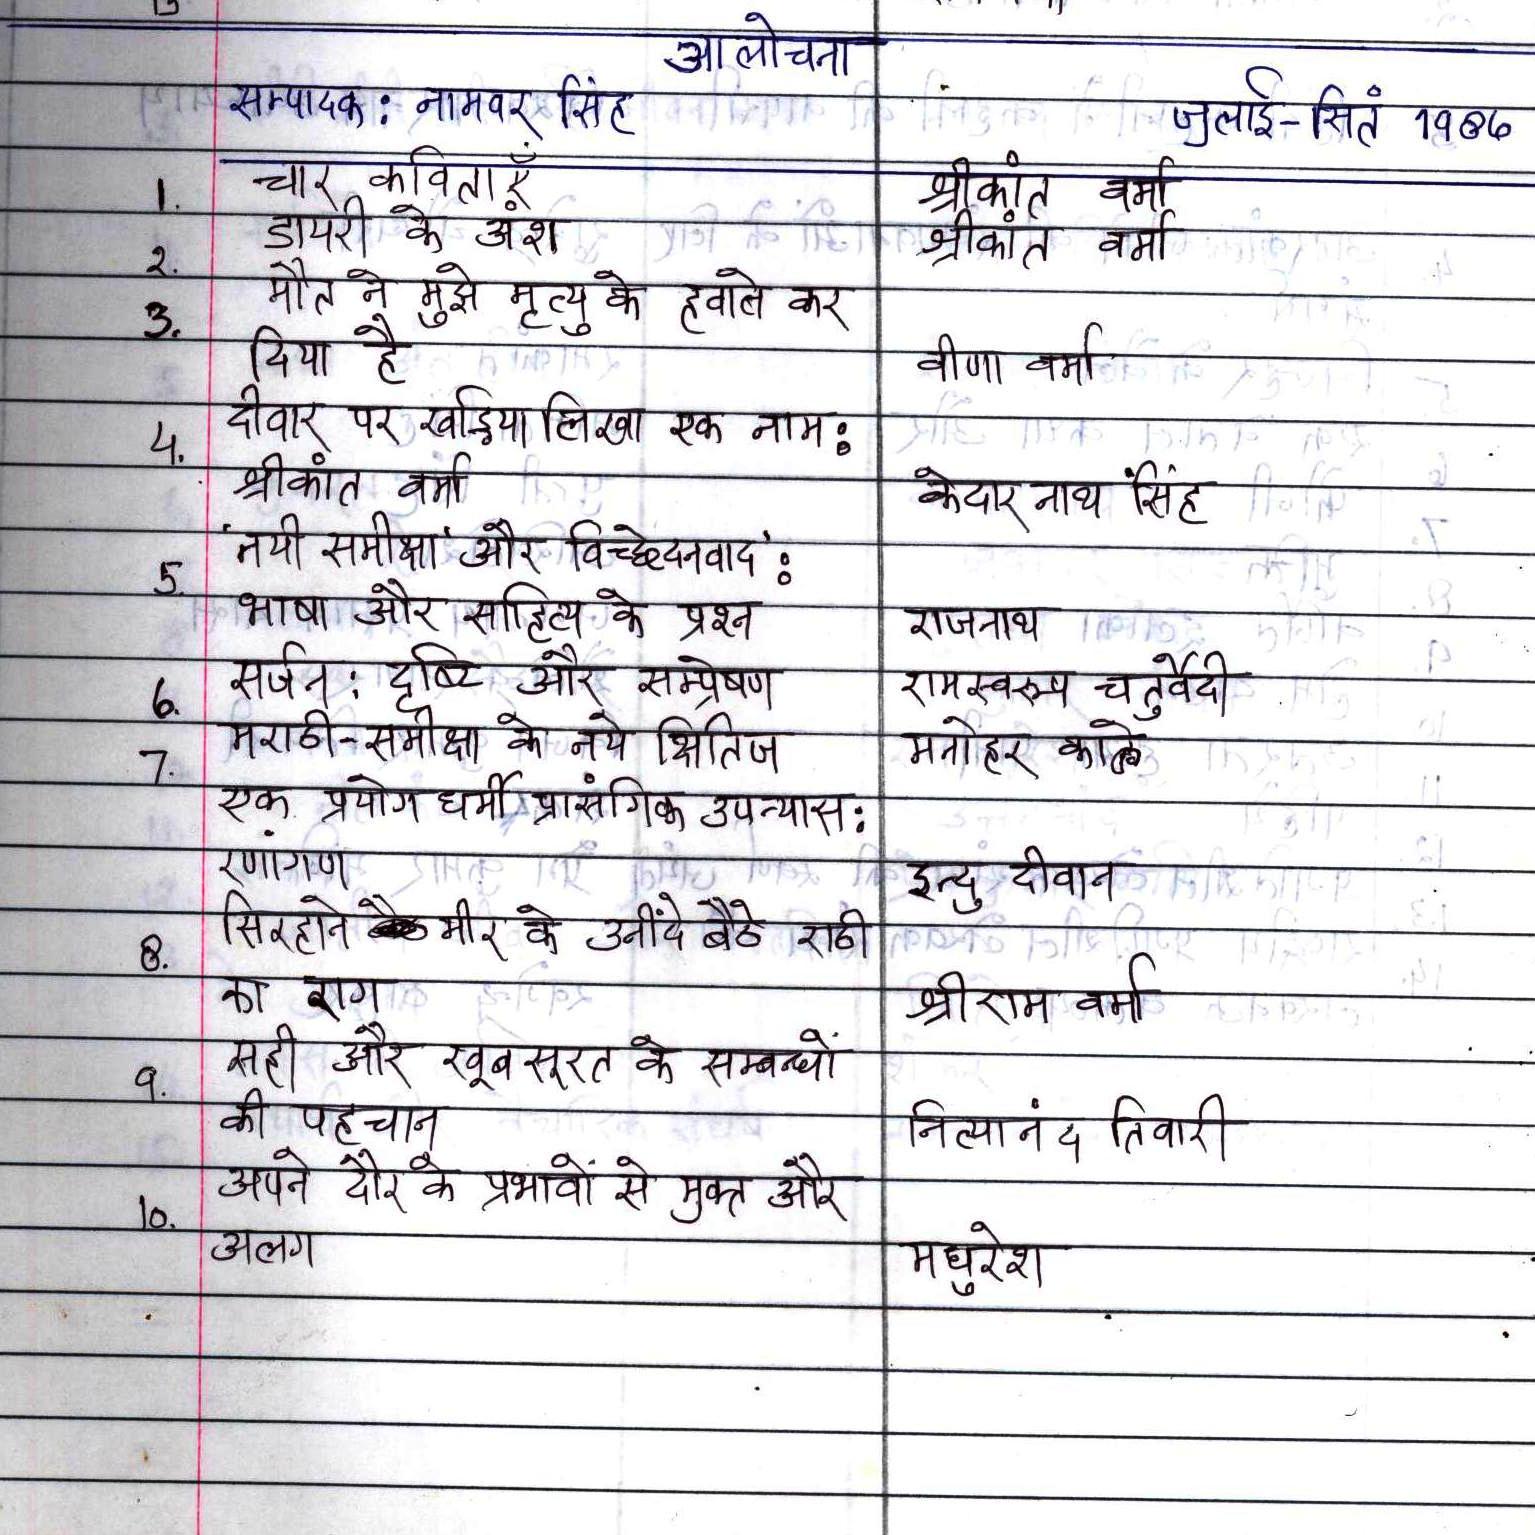 आलोचना
सम्पादक: नामवर सिंह जुलाई-सितं 1986
1. चार कविताएँ श्रीकांत वर्मा
2. डायरी के अंश श्रीकांत वर्मा
3. मौत ने मुझे मृत्यु के हवाले कर
दिया है वीणा वर्मा
4. दीवार पर खड़िया लिखा एक नाम:
श्रीकांत वर्मा केदार नाथ सिंह
5. 'नयी समीक्षा' और विच्छेदनवाद':
भाषा और साहित्य के प्रश्न राजनाथ
6. सर्जन: दृष्टि और सम्प्रेषण रामस्वरूप चतुर्वेदी
7. मराठी-समीक्षा के नये क्षितिज मनोहर काले
एक प्रयोग धर्मी प्रासंगिक उपन्यास:
रणांगण इन्दु दीवान
8. सिरहाने मीर के उनींदे बैठे राठी
का राग श्रीराम वर्मा
9. सही और खूबसूरत के सम्बन्धों
की पहचान नित्यानंद तिवारी
10. अपने दौर के प्रभावों से मुक्त और
अलग मधुरेश